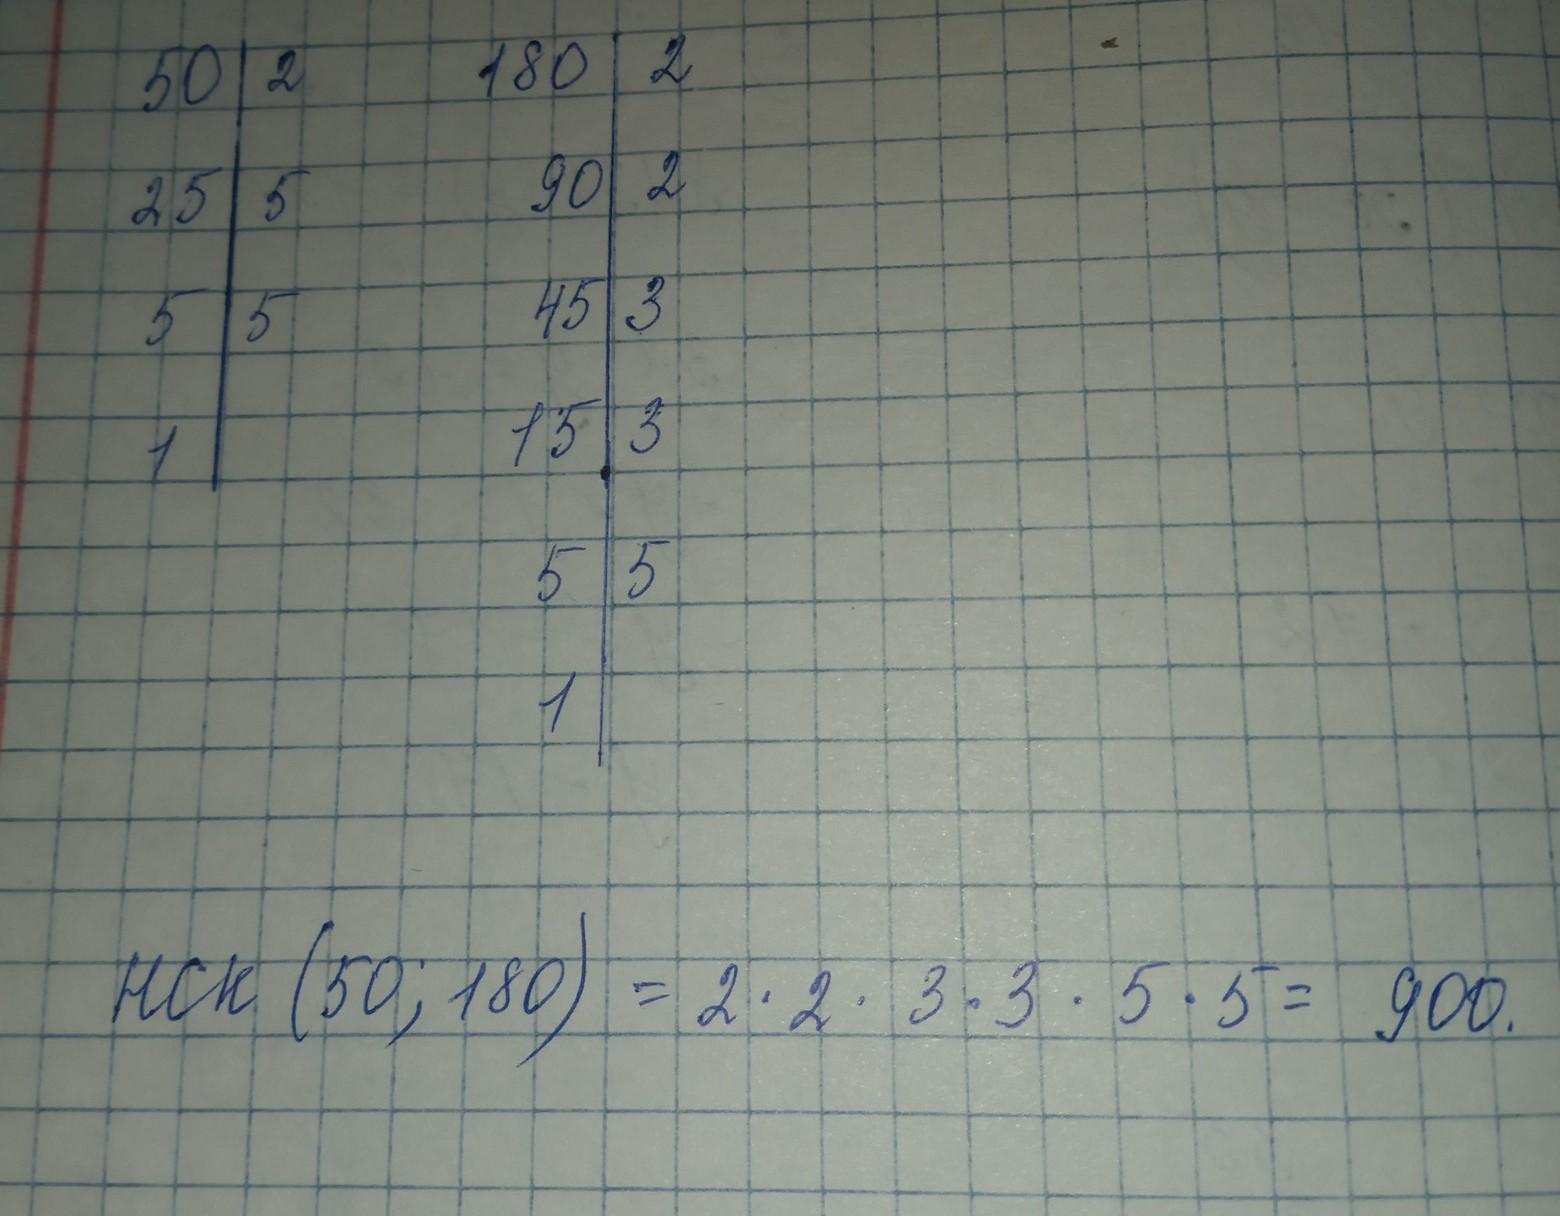 50 | 2 180 | 2
25 | 5 90 | 2
5 | 5 45 | 3
1 | 15 | 3
5 | 5
1 |
НСК (50; 180) = 2 · 2 · 3 · 3 · 5 · 5 = 900.